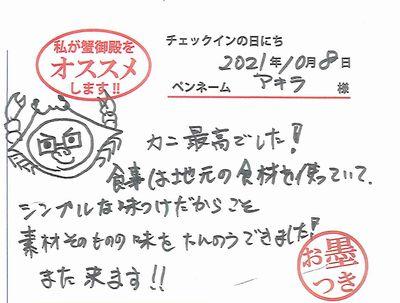 私が蟹御殿を
オススメ
します!!
チェックインの日にち
2021年10月8日
ペンネーム アキラ 様
カニ最高でした!
食事は地元の食材を使っていて、
シンプルな味つけだからこそ
素材そのものの味をたんのうできました!
また来ます!!
お墨
つき